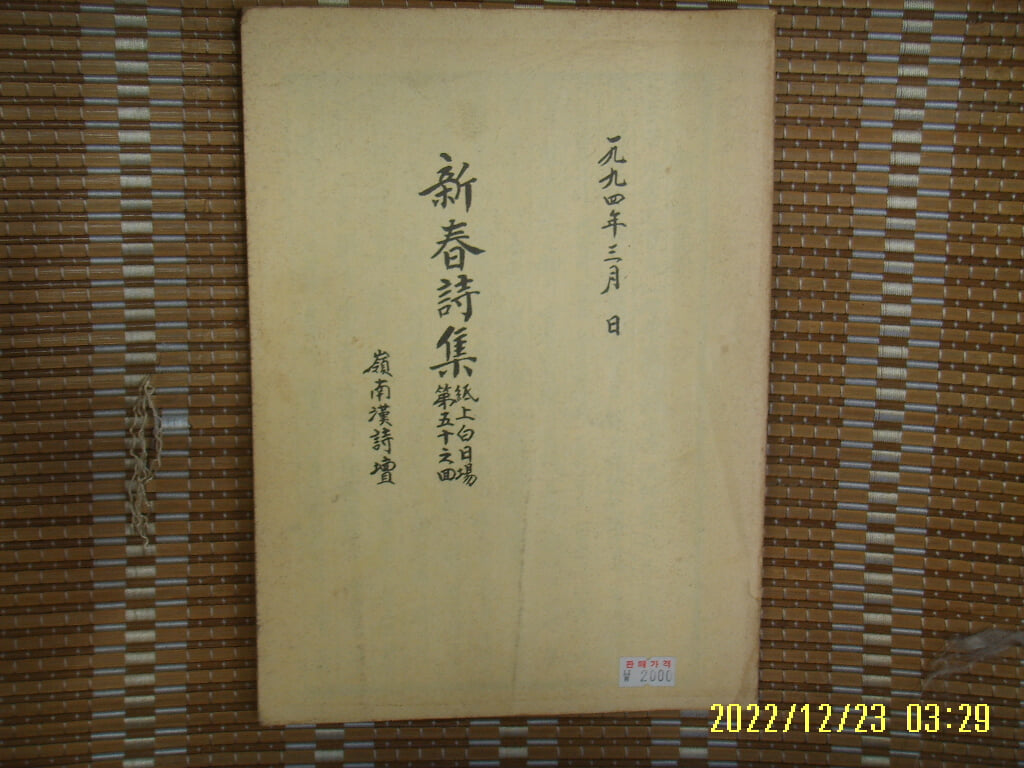 一九九四年 三月 日
新春詩集
紙上白日場
第五十之回
嶺南漢詩壇
판매가격
2000
2022/12/23 03:29